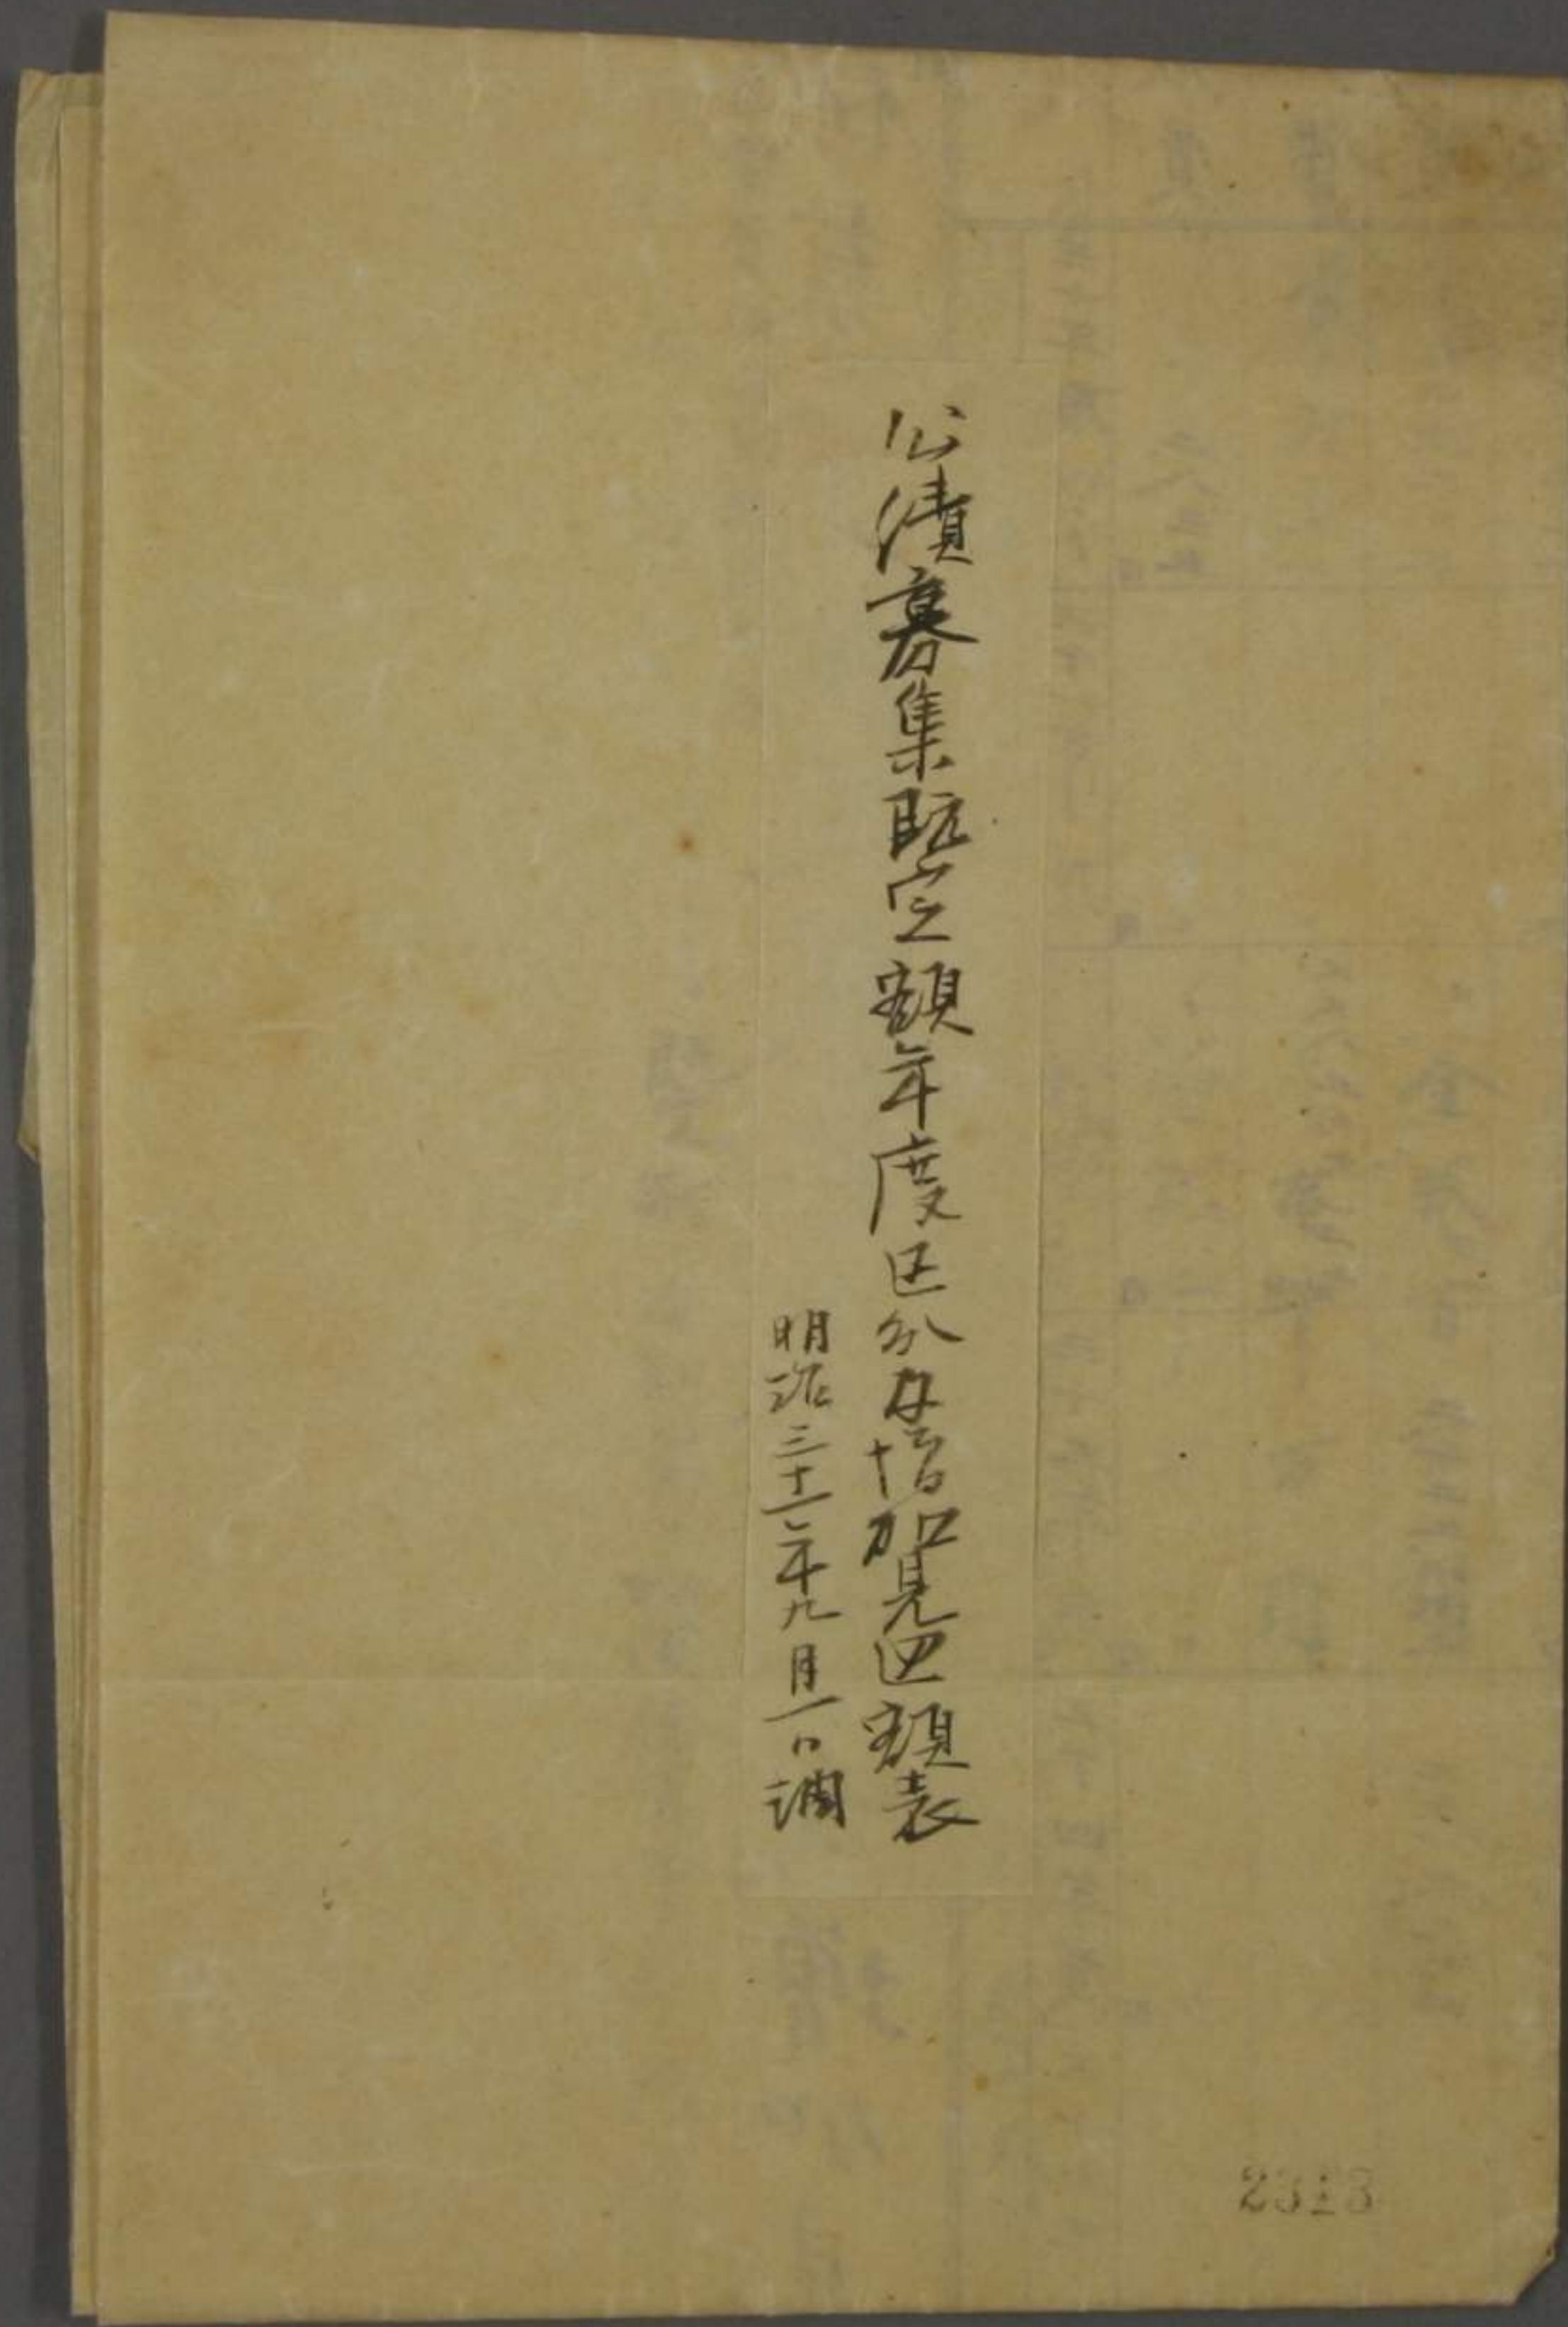 公債募集既定額年度区分及増加見込額表
明治三十一年九月一日調